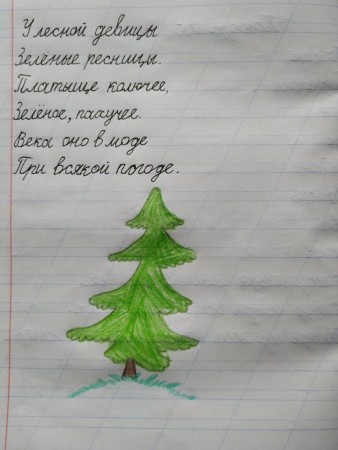 У лесной девицы
Зелёные ресницы.
Платьище колючее,
Зелёное, пахучее.
Века оно в моде
При всякой погоде.